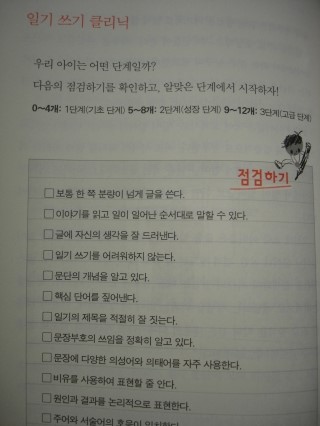 일기 쓰기 클리닉
우리 아이는 어떤 단계일까?
다음의 점검하기를 확인하고, 알맞은 단계에서 시작하자!
0~4개: 1단계(기초 단계) 5~8개: 2단계(성장 단계) 9~12개: 3단계(고급 단계)
점검하기
□ 보통 한 쪽 분량이 넘게 글을 쓴다.
□ 이야기를 읽고 일이 일어난 순서대로 말할 수 있다.
□ 글에 자신의 생각을 잘 드러낸다.
□ 일기 쓰기를 어려워하지 않는다.
□ 문단의 개념을 알고 있다.
□ 핵심 단어를 짚어낸다.
□ 일기의 제목을 적절히 잘 짓는다.
□ 문장부호의 쓰임을 정확히 알고 있다.
□ 문장에 다양한 의성어와 의태어를 자주 사용한다.
□ 비유를 사용하여 표현할 줄 안다.
□ 원인과 결과를 논리적으로 표현한다.
□ 주어와 서술어의 호응이 일치한다.